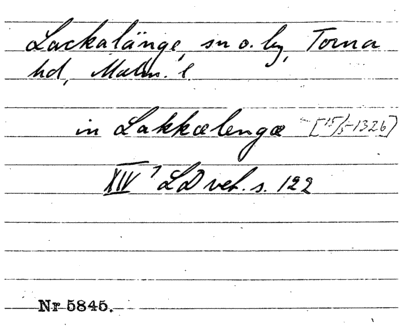 Lackalänge, sn o. by, Torna
hd, Malm. l.
in Lakkælengæ [15/5-1326]
XIV 1 LD vet. s. 122
Nr 5845.